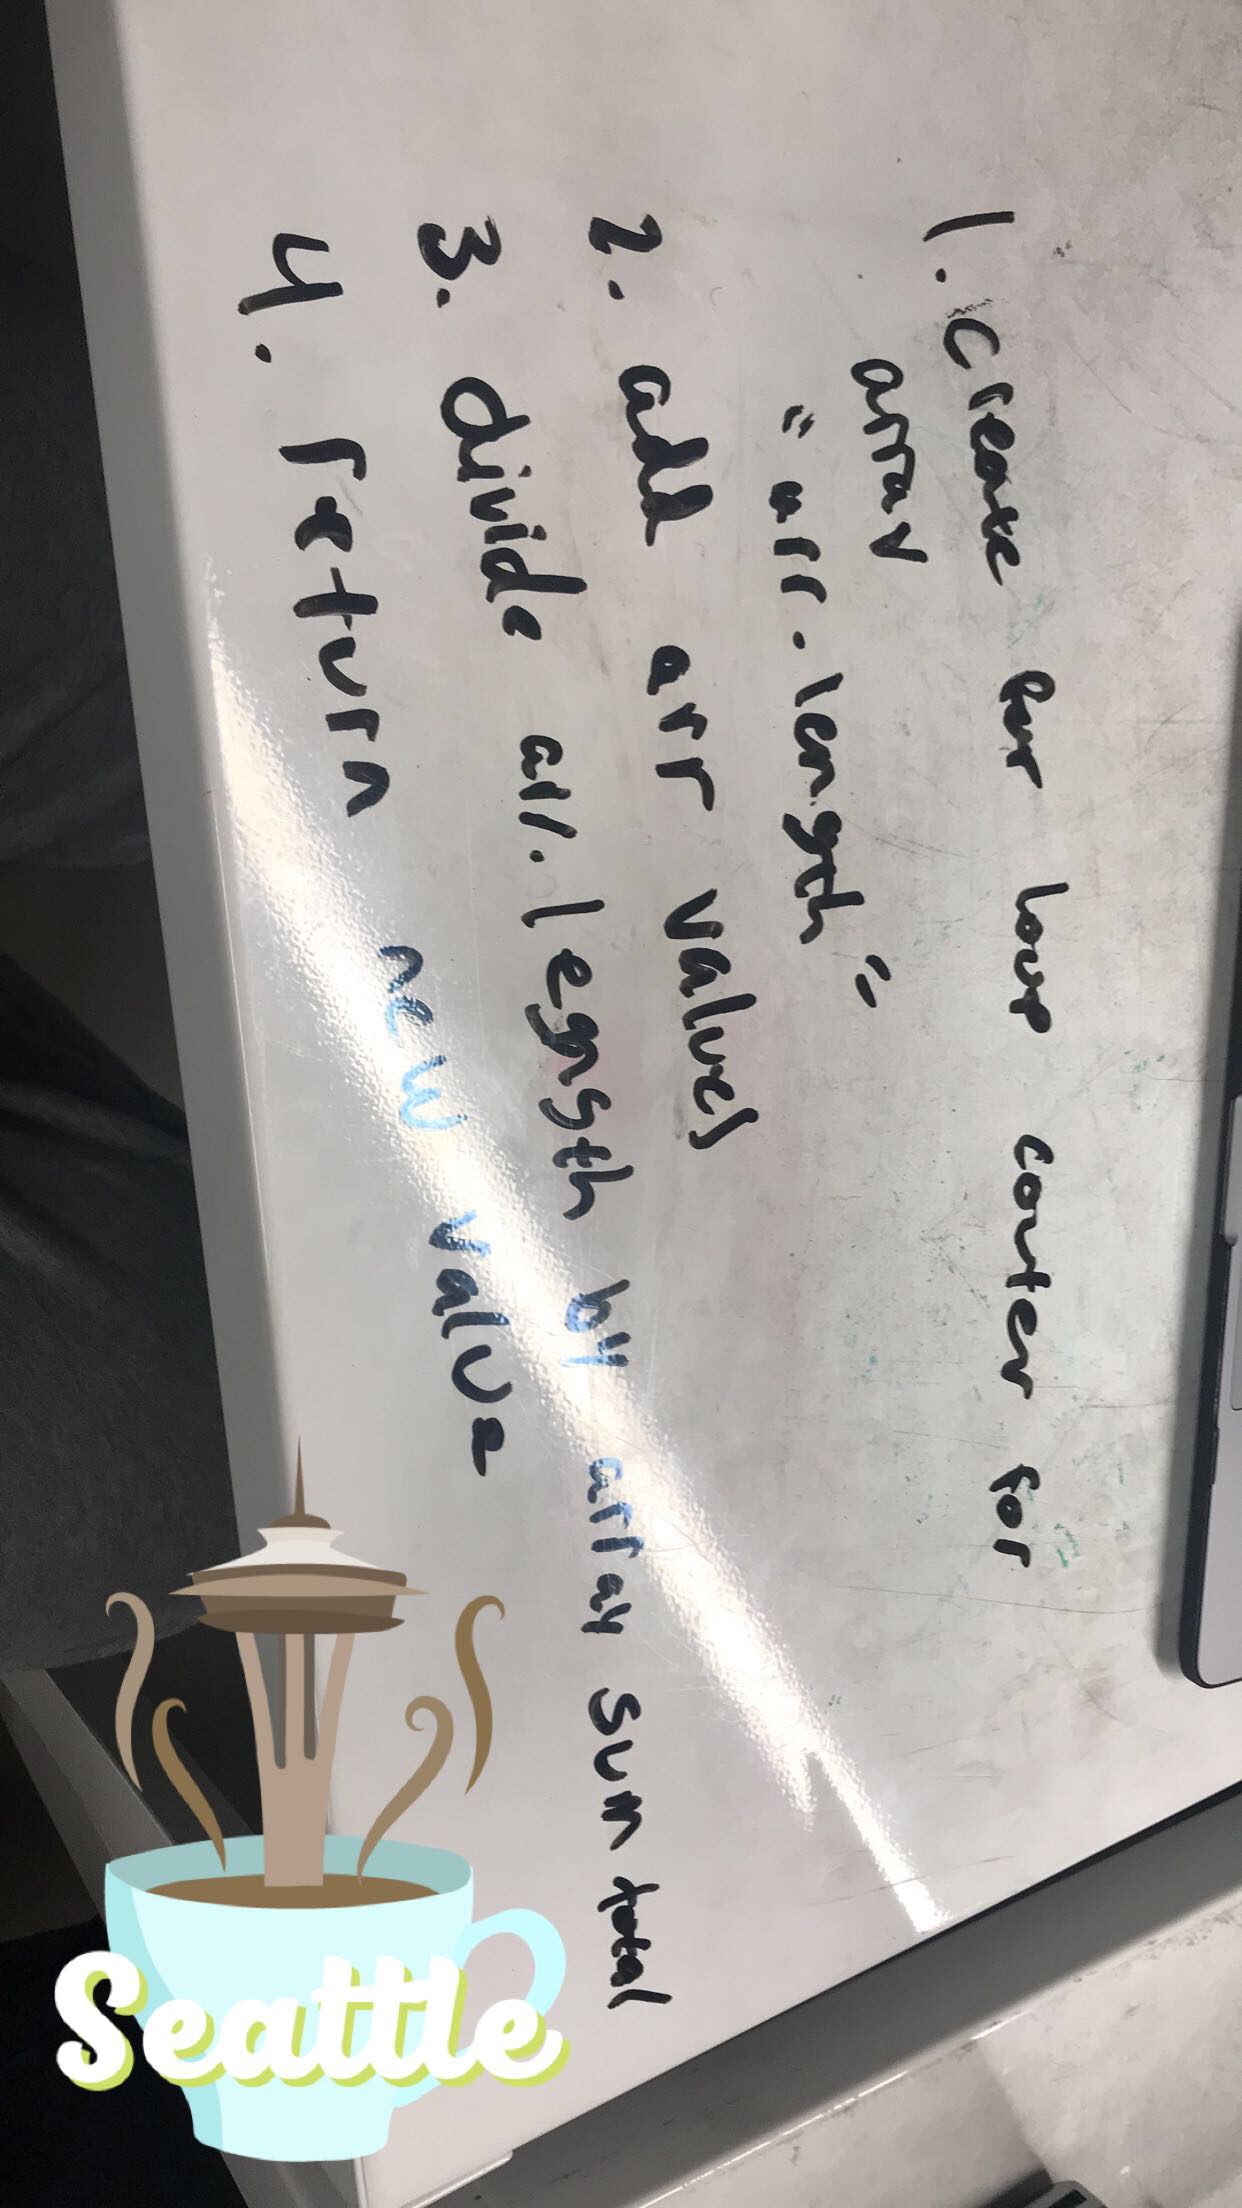 1. Create for loop counter for
array
"arr.length"
2. add arr values
3. divide arr.length by array sum total
4. return new value
Seattle